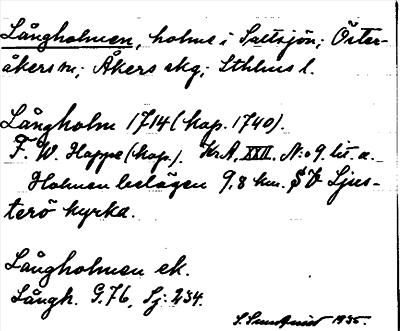 Långholmen, holme i Saltsjön; Öster-
åkers sn; Åkers skg; Sthlms l.
Långholm 1714 (kop. 1740).
F. W. Happe (kop.). Kr.A. XXII. N:o 9. lit. a.
Holmen belägen 9,8 km. SV Ljus-
terö kyrka.
Långholmen ek.
Långh. G.76, Sj: 234.
S. Sundqvist 1935.